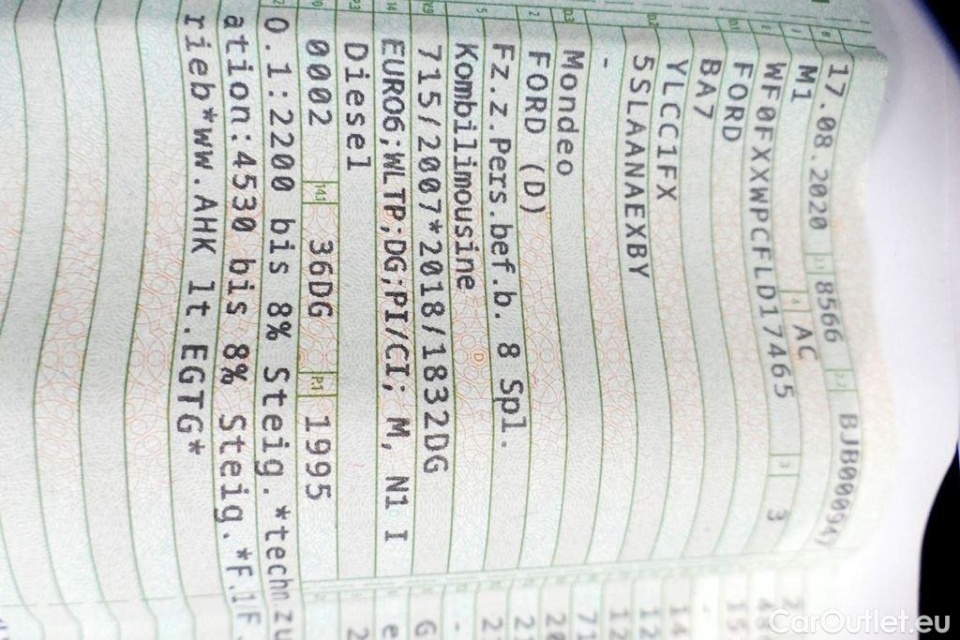 17.08.2020 2.1 8566 2.2 BJB00094
J M1 4 AC
E WF0FXXWPCFLD17465 3 3
D.1 FORD
BA7
D.2 YLCC1FX
5SLAANAEXBY
-
D.3 Mondeo
2 FORD (D)
5 Fz.z.Pers.bef.b. 8 Spl.
Kombilimousine
V.9 715/2007*2018/1832DG
14 EURO6;WLTP;DG;PI/CI; M, N1 I
P.3 Diesel
10 0002 14.1 36DG P.1 1995
O.1:2200 bis 8% Steig.*techn zu
ation:4530 bis 8% Steig.*F.1F.
rieb*ww.AHK lt.EGTG*
CarOutlet.eu